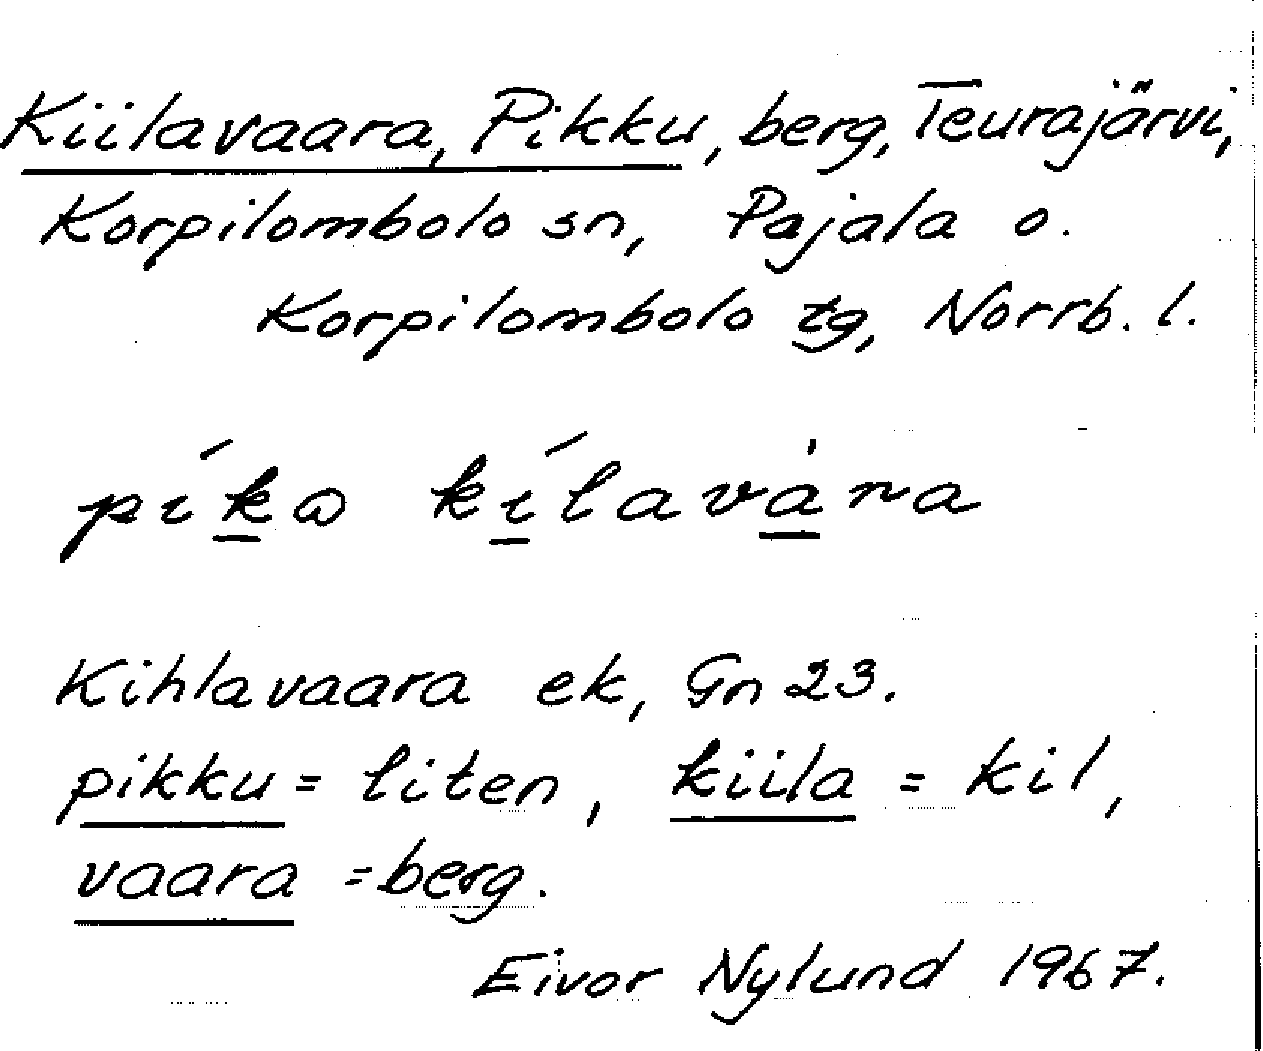 Kiilavaara, Pikku, berg, Teurajärvi,
Korpilombolo sn, Pajala o.
Korpilombolo tg, Norrb. l.
píkω kílavàra
Kihlavaara ek, Gn 23.
pikku = liten, kiila = kil,
vaara = berg.
Eivor Nylund 1967.